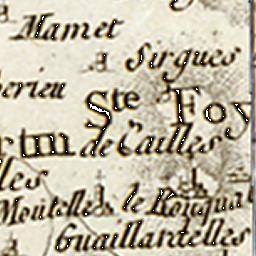 Mamet
Sirgues
Ste Foy
de Cailles
lles
Moutelle
le Rouqual
Guaillantelles